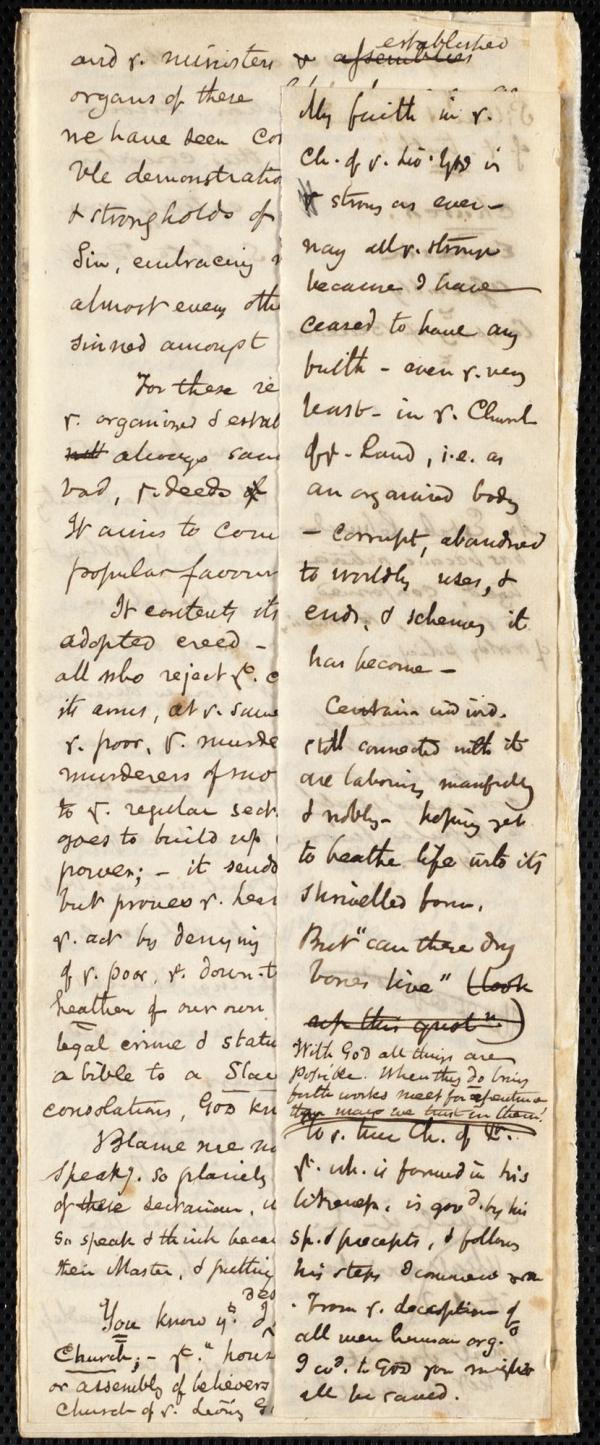 and y. ministers & assemblies established
organs of these
we have seen co
ble demonstratio
& strongholds of
Sin, embracing
almost every oth
sinned amongst
For these re
y. organized & estab
not always sam
bad, y. deeds of
It aims to com
popular favour
It contents its
adopted creed –
all who reject yt. c
its arms, at y. same
y. poor, y. murde
murderers of
to y. regular sect
goes to build up
power; – it sends
but proves y. hear
y. act by denying
of y. poor, y. down-t
heathen of our own
legal crime & statu
a bible to a Slav
consolations, God kn
Blame me no
speakg. so plainly
of these sectarians, w
so speak & think becau
their Master, & putting
des
You know yt. I
Church; – yt. "hous
or assembly of believers
Church of y. Living G
My faith in y.
Ch. of y. Liv. God is
& strong as ever –
nay all y. stronger
because I have
ceased to have any
faith – even y. very
least – in y. Church
of y. Land, i.e. as
an organized body
– corrupt, abandoned
to worldly uses, &
ends, & schemes it
has become –
Certain individ.
still connected with it
are laboring manfully
& nobly – hoping yet
to breathe life into its
shrivelled form.
But "can these dry
bones live" (look
up this quotn.)
With God all things are
possible. When they do bring
forth works meet for repentance
then may we trust in them!
to y. true Ch. of
yt. wh. is formed in his
likeness, is govd. by his
sp. & precepts, & follows
his steps
From y. deception of
all men human org.
I wd. to God you might
all be saved.